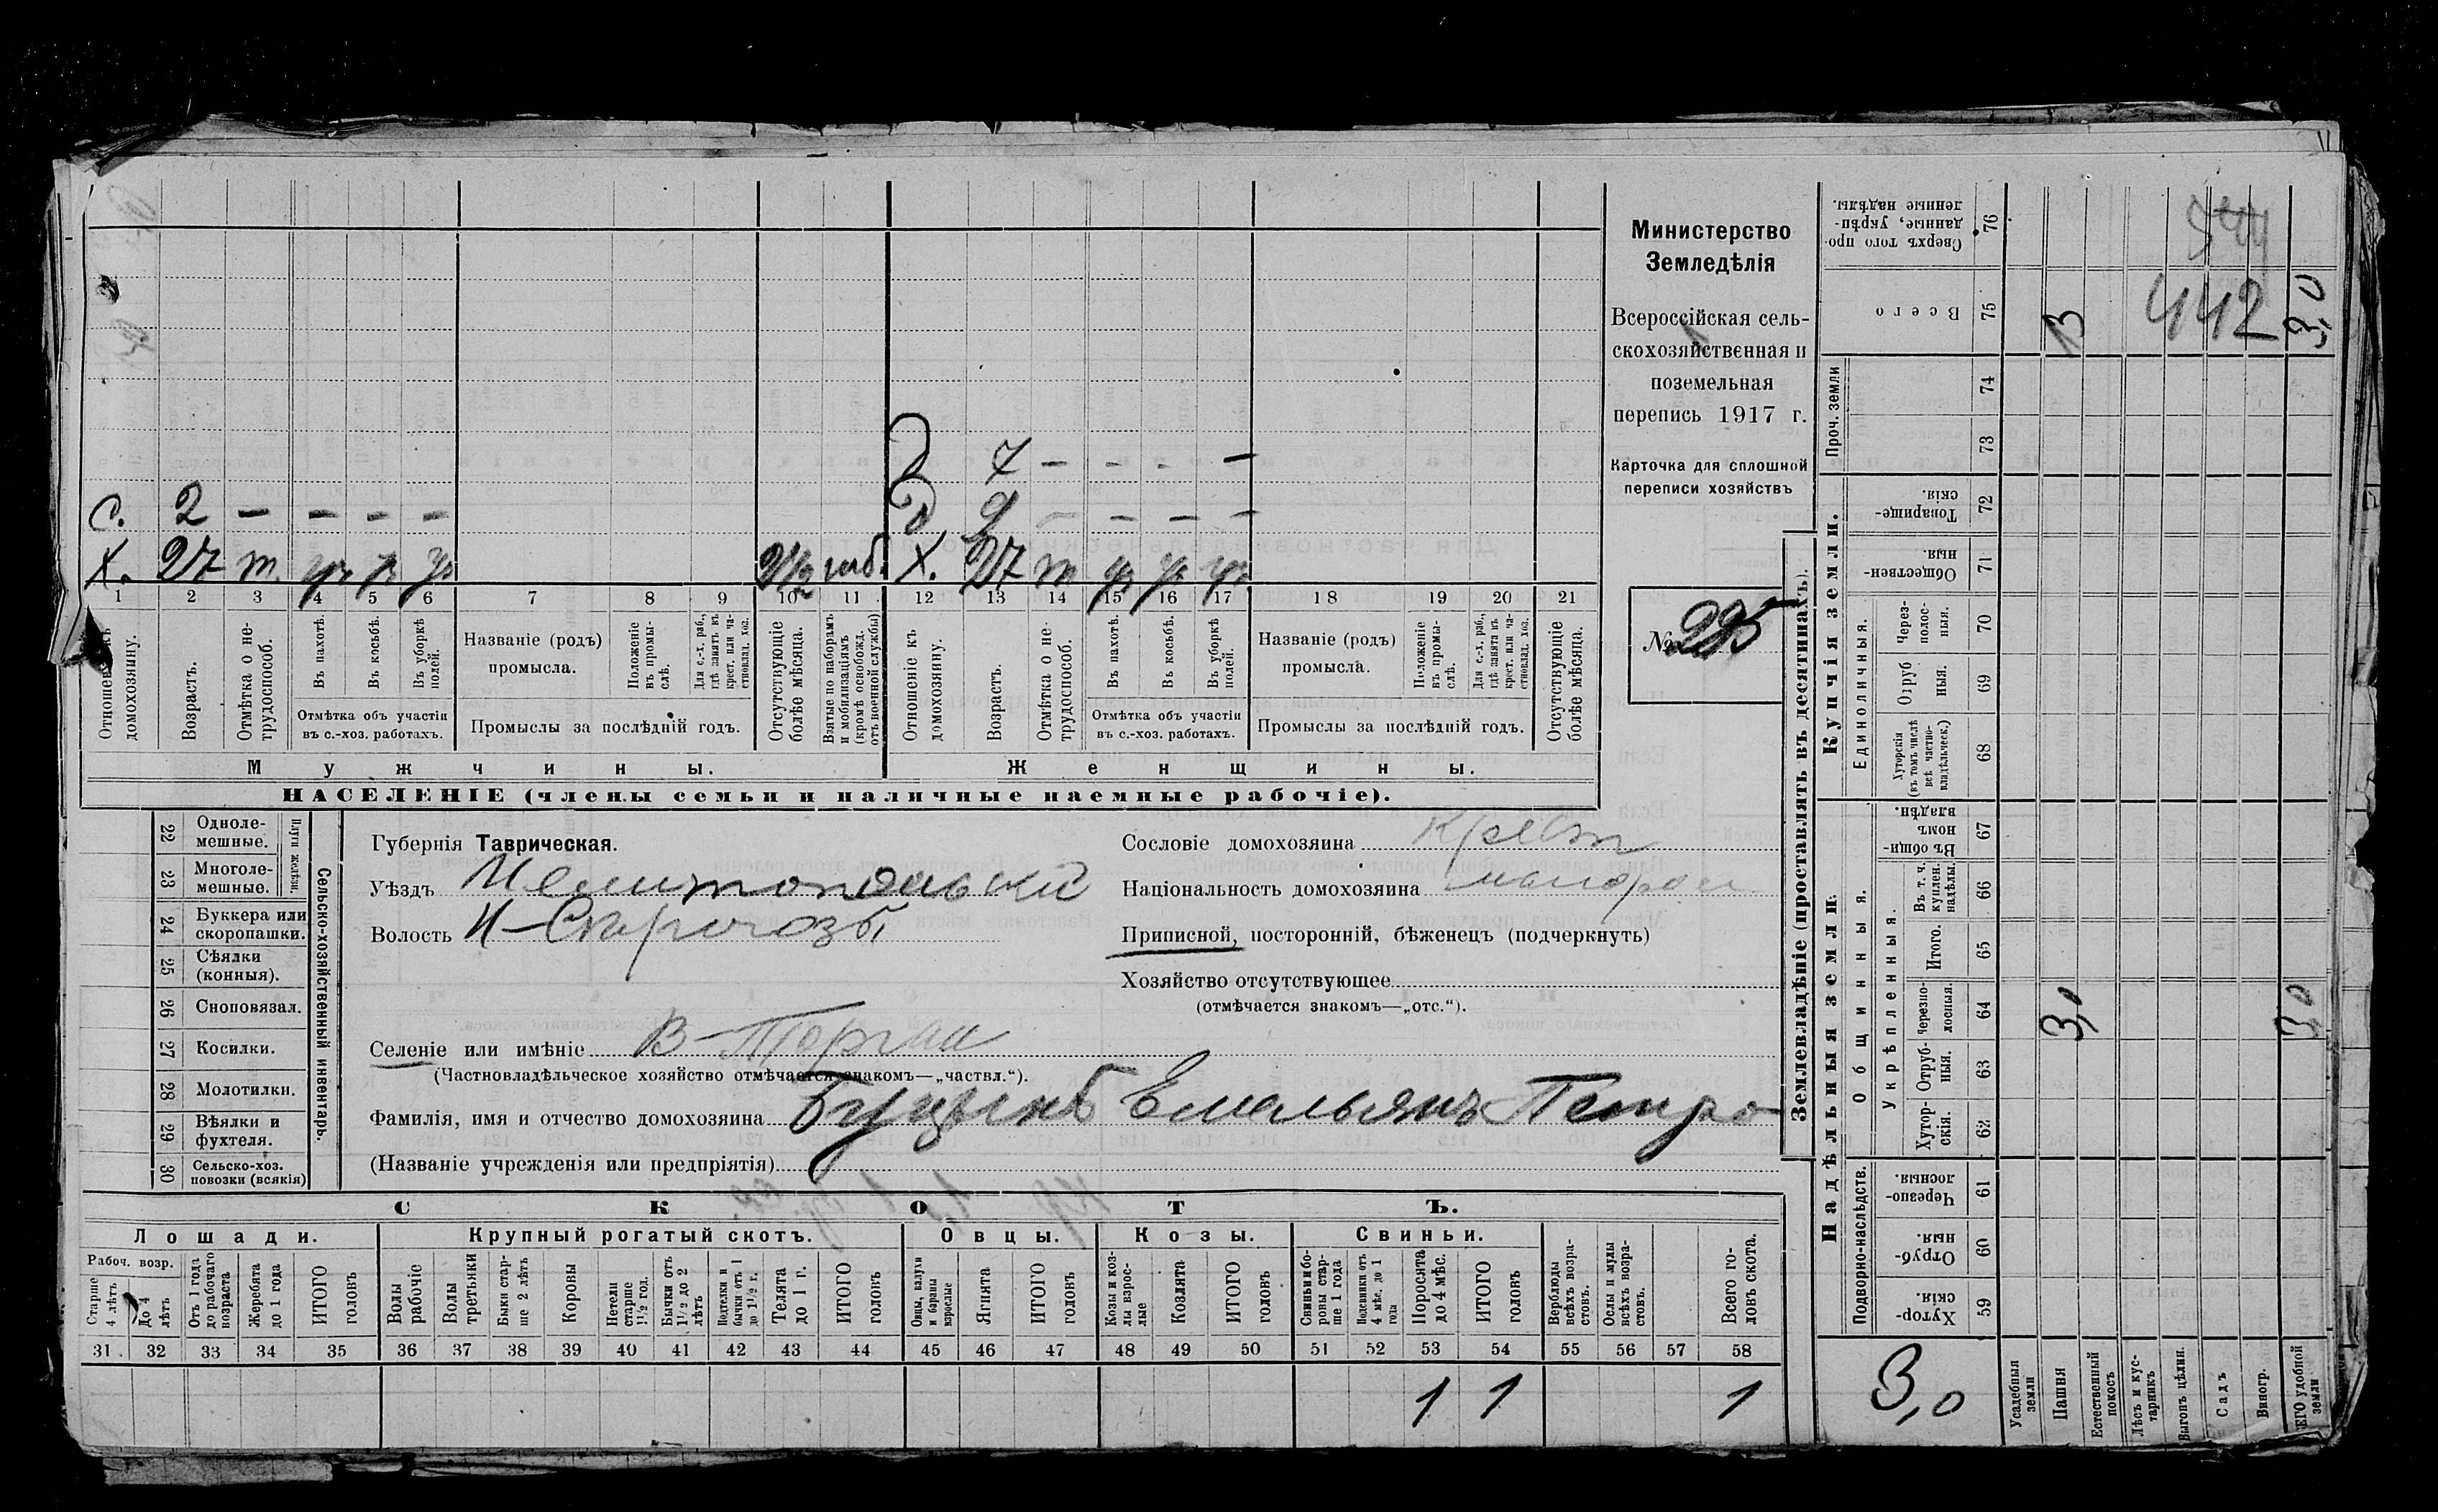 Министерство
Земледѣлія
Всероссійская сель-
скохозяйственная и
поземельная
перепись 1917 г.
Карточка для сплошной
переписи хозяйствъ
№ 295
442
д 7 — — — —
с. 2 — — — — д 9 — — — —
х. 27 т. ур р ур 2½ моб. х. 27 т ур ур ур
1 2 3 4 5 6 7 8 9 10 11 12 13 14 15 16 17 18 19 20 21
Отношеніе къ домохозяину.
Возрастъ.
Отмѣтка о не-трудоспособ.
Въ пахотѣ.
Въ косьбѣ.
Въ уборкѣ полей.
Отмѣтка объ участіи въ с.-хоз. работахъ.
Названіе (родъ) промысла.
Положеніе въ промы-слѣ.
Для с.-х. раб., гдѣ занятъ въ крест. или ча-стновлад. хоз.
Промыслы за послѣдній годъ.
Отсутствующіе болѣе мѣсяца.
Взятые по наборамъ и мобилизаціямъ (кромѣ освобожд. отъ военной службы)
Отношеніе къ домохозяину.
Возрастъ.
Отмѣтка о не-трудоспособ.
Въ пахотѣ.
Въ косьбѣ.
Въ уборкѣ полей.
Отмѣтка объ участіи въ с.-хоз. работахъ.
Названіе (родъ) промысла.
Положеніе въ промы-слѣ.
Для с.-х. раб., гдѣ занята въ крест. или ча-стновлад. хоз.
Промыслы за послѣдній годъ.
Отсутствующіе болѣе мѣсяца.
Мужчины. Женщины.
НАСЕЛЕНІЕ (члены семьи и наличные наемные рабочіе).
22 Однолемешные.
23 Многолемешные.
Плуги желѣзн.
24 Буккера или скоропашки.
25 Сѣялки (конныя).
26 Сноповязал.
27 Косилки.
28 Молотилки.
29 Вѣялки и фухтеля.
30 Сельско-хоз. повозки (всякія)
Сельско-хозяйственный инвентарь.
Губернія Таврическая.
Уѣздъ Мелитопольскій
Волость
Селеніе или имѣніе В-Торгаи
(Частновладѣльческое хозяйство отмѣчается знакомъ—„частвл.“).
Фамилія, имя и отчество домохозяина Буцынъ Емельянъ Петро
(Названіе учрежденія или предпріятія)
Сословіе домохозяина Крест
Національность домохозяина малорос
Приписной, посторонній, бѣженецъ (подчеркнуть)
Хозяйство отсутствующее
(отмѣчается знакомъ—„отс.“).
СКОТЪ.
Лошади. Крупный рогатый скотъ. Овцы. Козы. Свиньи.
Рабоч. возр.
Старше 4 лѣтъ
До 4 лѣтъ
Отъ 1 года до рабочаго возраста
Жеребята до 1 года
ИТОГО головъ
Волы рабочіе
Волы третьяки
Быки стар-ше 2 лѣтъ
Коровы
Нетели старше 1½ год.
Бычки отъ 1½ до 2 лѣтъ
Подтелки и бычки отъ 1 до 1½ г.
Телята до 1 г.
ИТОГО головъ
Овцы, валухи и бараны взрослые
Ягнята
ИТОГО головъ
Козы и коз-лы взрос-лые
Козлята
ИТОГО головъ
Свиньи и бо-ровы стар-ше 1 года
Подсвинки отъ 4 мѣс. до 1 года
Поросята до 4 мѣс.
ИТОГО головъ
Верблюды всѣхъ возра-стовъ.
Ослы и мулы всѣхъ возра-стовъ.
Всего го-ловъ скота.
31 32 33 34 35 36 37 38 39 40 41 42 43 44 45 46 47 48 49 50 51 52 53 54 55 56 57 58
1 1 1
Землевладѣніе (проставлять въ десятинахъ).
Сверхъ того про-данные, укрѣп-ленные надѣлы. 76
Всего 75 3 3,0
Проч. земли 74
73
Купчія земли.
Товарище-скія. 72
Обществен-ныя. 71
Единоличныя.
Через-полос-ныя. 70
Отруб ныя. 69
Хуторскія (въ томъ числѣ всѣ частно-владѣльческ.) 68
Надѣльныя земли.
Общинныя.
Въ общи-номъ владѣн. 67
Укрѣпленныя.
Въ т. ч. куплен. надѣлы. 66
Итого. 65
Черезпо-лосныя. 64 3,0 3,0
Отруб-ныя. 63
Хутор-скія. 62
Подворно-наслѣдств.
Черезпо-лосныя. 61
Отруб-ныя. 60
Хутор-скія. 59
3,0
Усадебныя земли
Пашня
Естественный покосъ
Лѣсъ и кус-тарникъ
Выгонъ цѣлин.
Садъ
Виногр.
ЕГО удобной земли